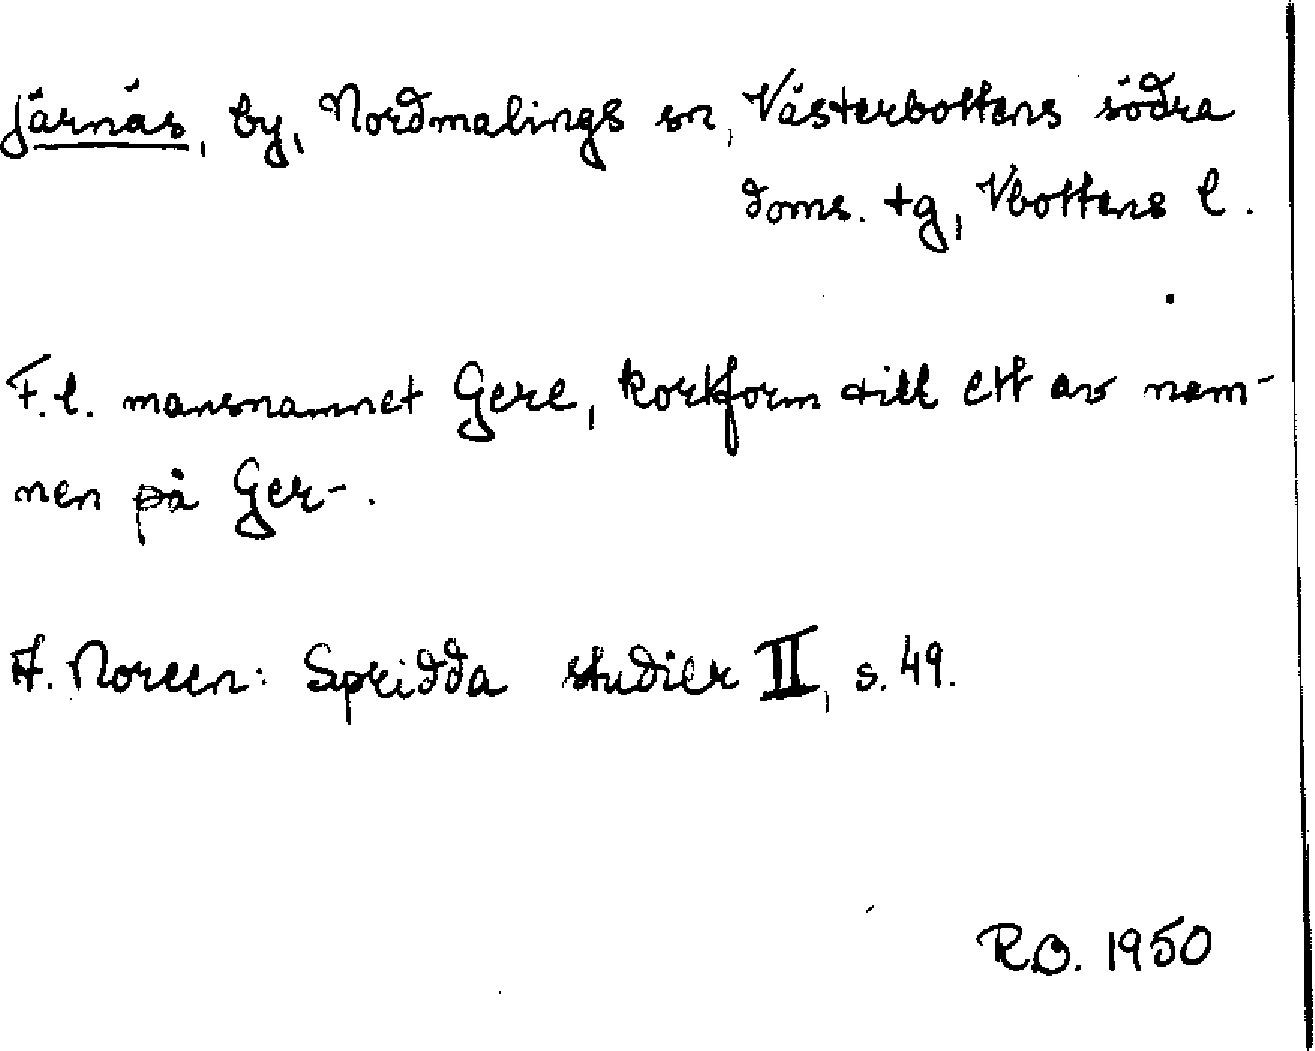 Järnäs, by, Nordmalings sn, Västerbottens södra
doms. tg, Vbottens l.
F.l. mansnamnet Gere, kortform till ett av nam-
nen på Ger-.
A. Noreen: Spridda studier II, s. 49.
R.O. 1950